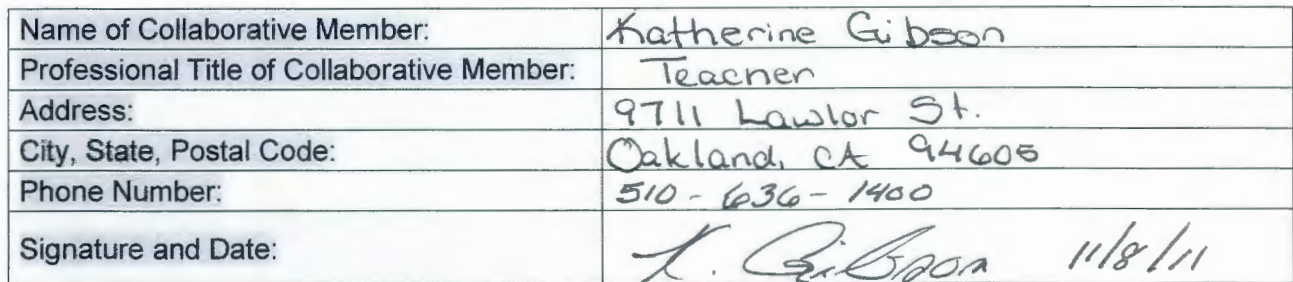 Name of Collaborative Member: Katherine Gibson
Professional Title of Collaborative Member: Teacher
Address: 9711 Lawlor St.
City, State, Postal Code: Oakland, CA 94605
Phone Number: 510-636-1400
Signature and Date: K. Gibson 11/8/11